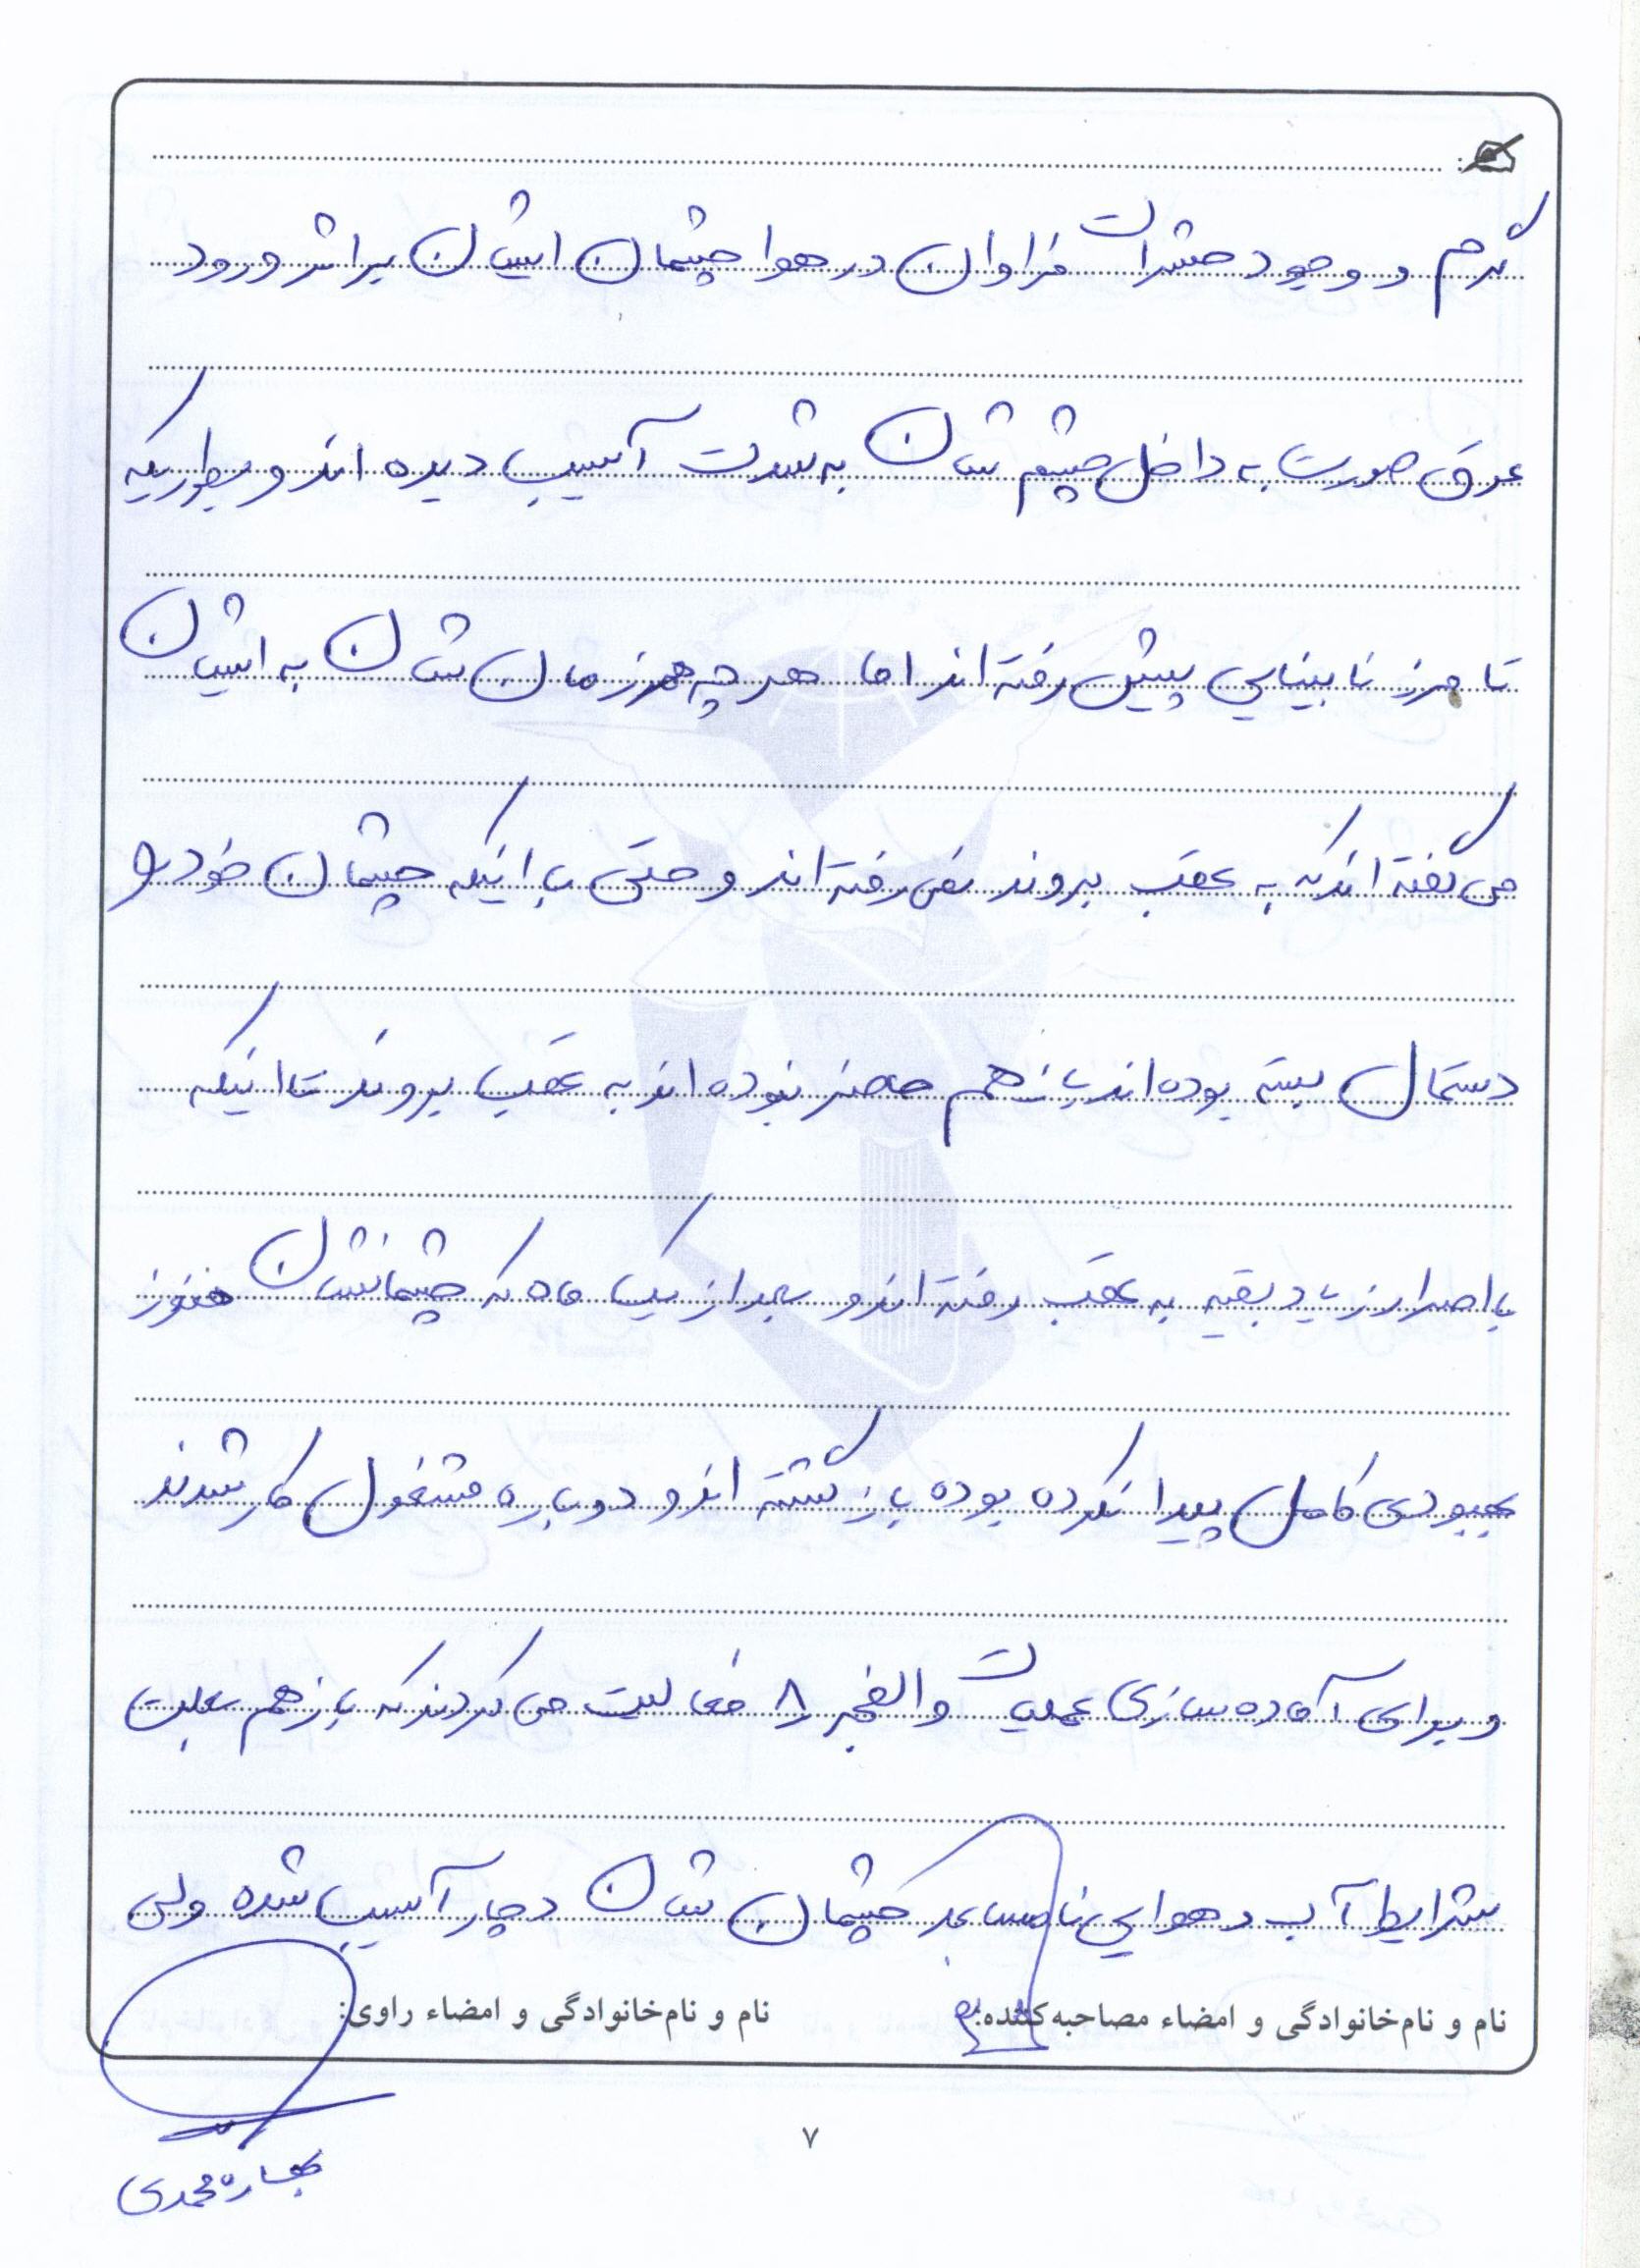 گرم و وجود حشرات فراوان در هوا چشمان ایشان بر اثر ورود
عرق صورت به داخل چشم شان به شدت آسیب دیده اند و بطوریکه
تا مرز نابینایی پیش رفته اند اما هر چه همرزمان شان به ایشان
می گفته اند که به عقب بروند نمی رفته اند و حتی با اینکه چشمان خود را
دستمال بسته بوده اند باز هم حاضر نبوده اند به عقب بروند تا اینکه
با اصرار زیاد بقیه به عقب رفته اند و بعد از یک ماه که چشمانشان هنوز
بهبودی کامل پیدا نکرده بوده باز گشته اند و دوباره مشغول کار شدند
و برای آماده سازی عملیات والفجر ۸ فعالیت می کردند که باز هم بعلت
شرایط آب و هوایی نامساعد چشمان شان دچار آسیب شده ولی
نام و نام‌خانوادگی و امضاء مصاحبه‌کننده:
نام و نام‌خانوادگی و امضاء راوی:
۷
محمدی